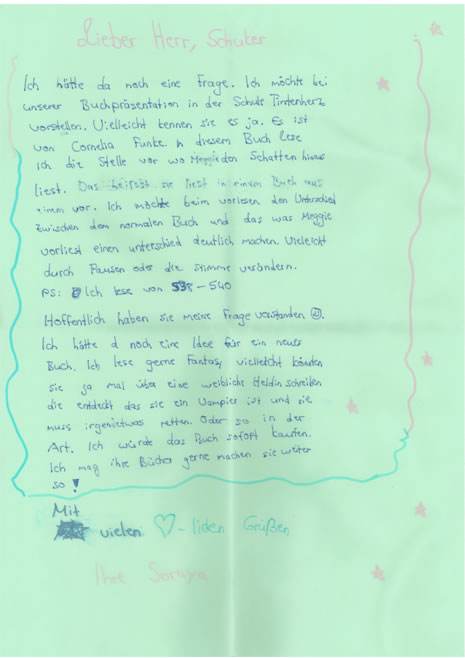 Lieber Herr, Schuker
Ich hätte da noch eine Frage. Ich möchte bei
unserer Buchpräsentation in der Schule Tintenherz
vorstellen. Vielleicht kennen sie es ja. Es ist
von Cornelia Funke. In diesem Buch lese
ich die Stelle vor wo Meggie den Schatten hinaus
liest. Das heißst sie liest in einem Buch aus
einem vor. Ich möchte beim vorlesen den Unterschied
zwischen dem normalen Buch und das was Meggie
vorliest einen unterschied deutlich machen. Vieleicht
durch Pausen oder die stimme verändern.
PS: Ich lese von 538-540
Hoffentlich haben sie meine Frage verstanden ☺.
Ich hätte d noch eine Idee für ein neues
Buch. Ich lese gerne Fantasy vielleicht könnten
sie ja mal über eine weibliche Heldin schreiben
die entdeckt das sie ein Vampier ist und sie
muss irgenietwas retten. Oder so in der
Art. Ich würde das Buch sofort kaufen.
Ich mag ihre Bücher gerne machen sie weiter
so!
Mit
vielen ♡-lichen Grüßen
Ihre Soraya